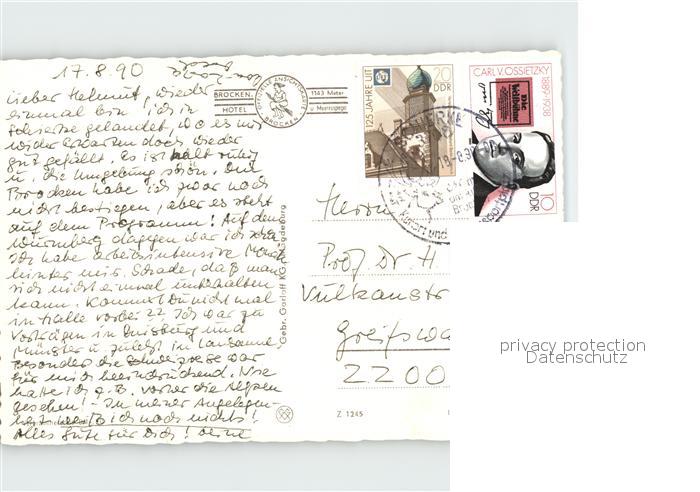 17.8.90
Lieber Helmut, wieder
einmal bin ich in
Schierke gelandet, wo es mir
wider Erwarten doch wieder
gut gefällt. Es ist halt ruhig
u. die Umgebung schön. Den
Brocken habe ich zwar noch
nicht bestiegen, aber es steht
auf dem Programm! Auf dem
Wurmberg dagegen war ich
Ich habe arbeitsintensive
hinter mir. Schade, daß man
sich nicht einmal unterhalten
kann. Kommst Du nicht mal
in Halle vorbei?? Ich war zu
Vorträgen in Duisburg und
Münster u. zuletzt in Lausanne.
Besonders die Schweizreise war
für mich beeindruckend. Nie
hatte ich z.B. vorher die Alpen
gesehen! - In meiner Angelegen-
heit weiß ich noch nichts!
Alles Gute für Dich! Deine
BROCKEN-
HOTEL
OFFIZIELLE ANSICHTSKARTE
BROCKEN
1143 Meter
ü. Meeresspiegel
125 JAHRE UIT
20
DDR
CARL V. OSSIETZKY
1889-1938
Die
Weltbühne
10
DDR
Kurort und
Gebr. Garloff KG, Magdeburg
Herrn
Prof. Dr. H
Vulkanstr
Greifswa
2200
Z 1245
privacy protection
Datenschutz